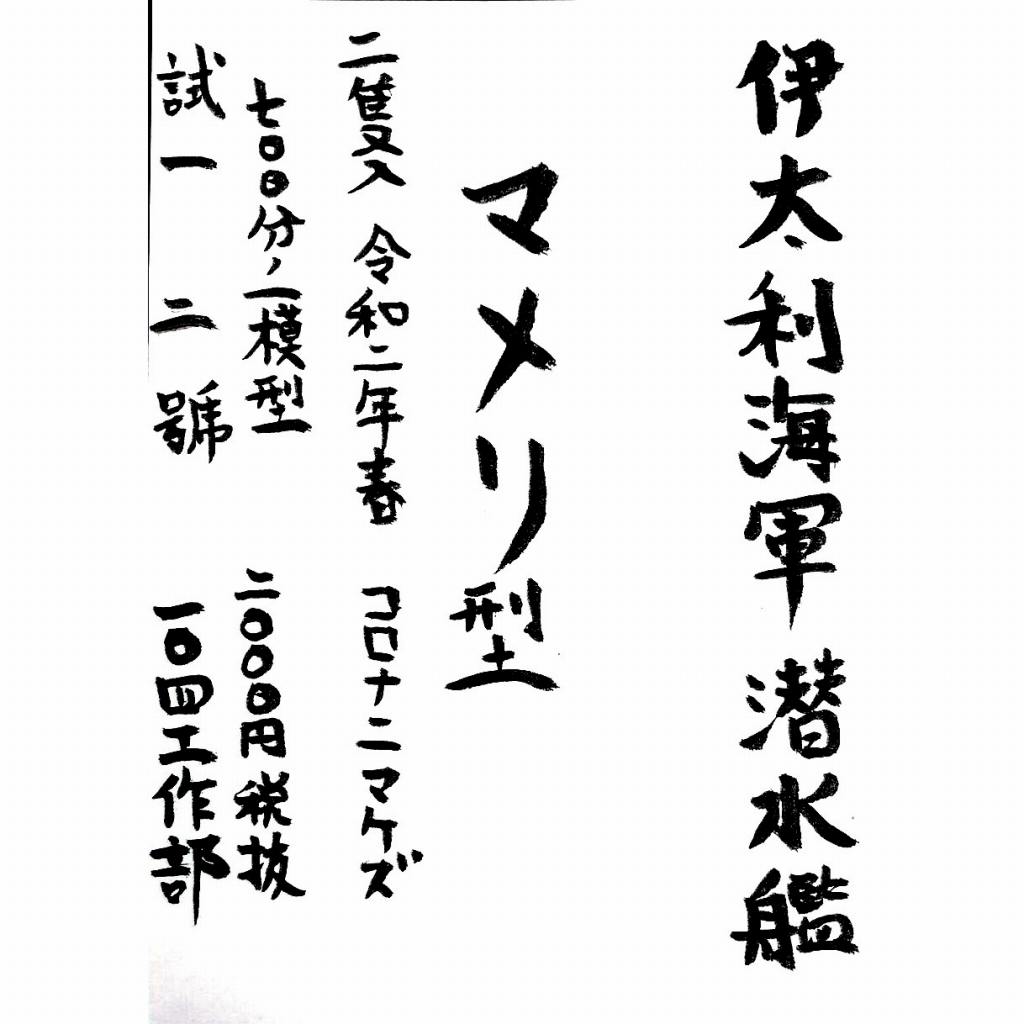 伊太利海軍 潜水艦
マメリ型
二隻入 令和二年春 コロナニマケズ
七〇〇分ノ一模型 二〇〇〇円税抜
試一二號 一〇四工作部